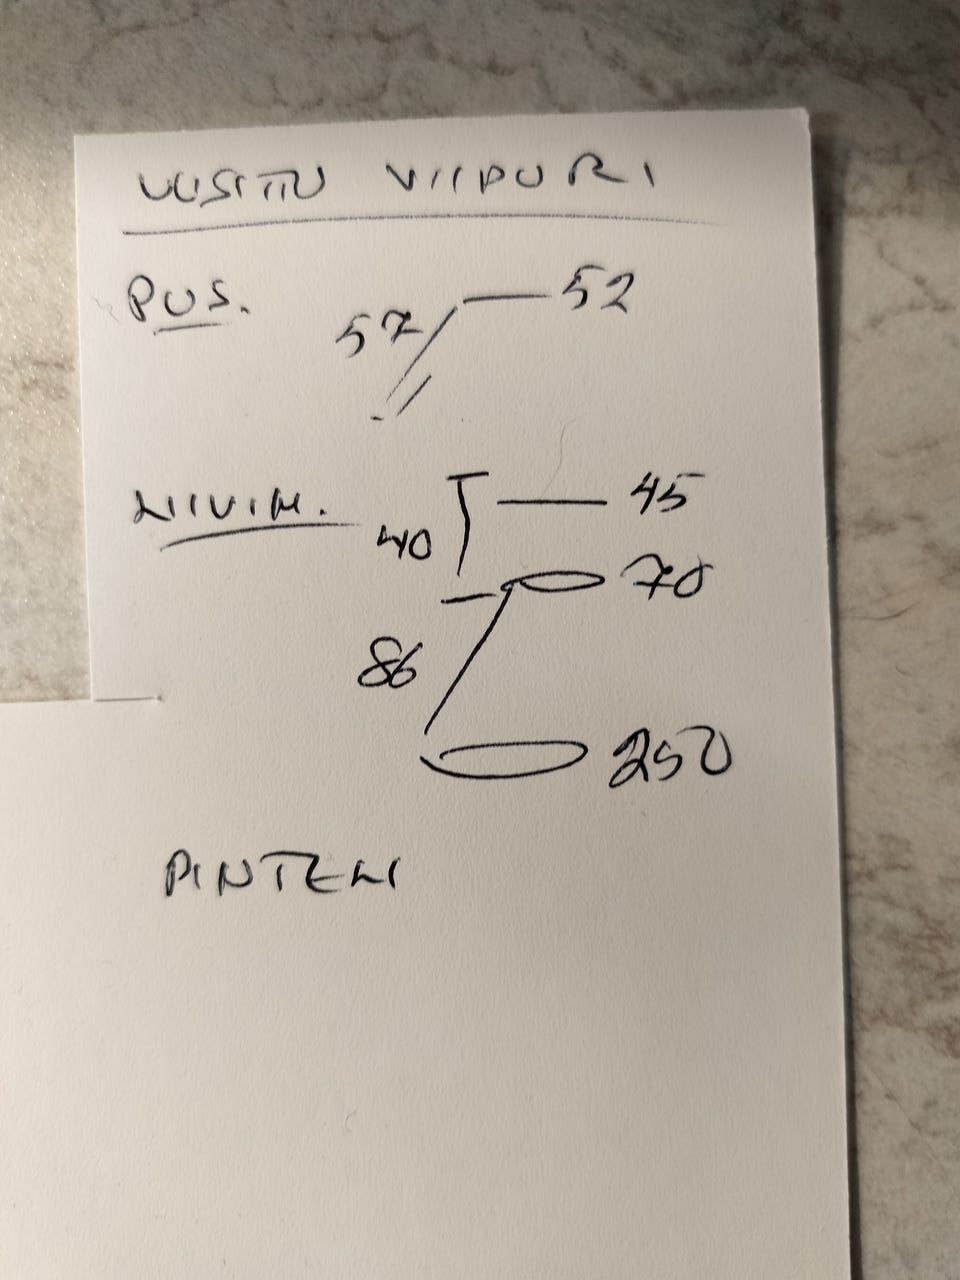 VIIPURI
PUS.
52
57
LIIVIN.
45
40
70
86
250
PINTELI